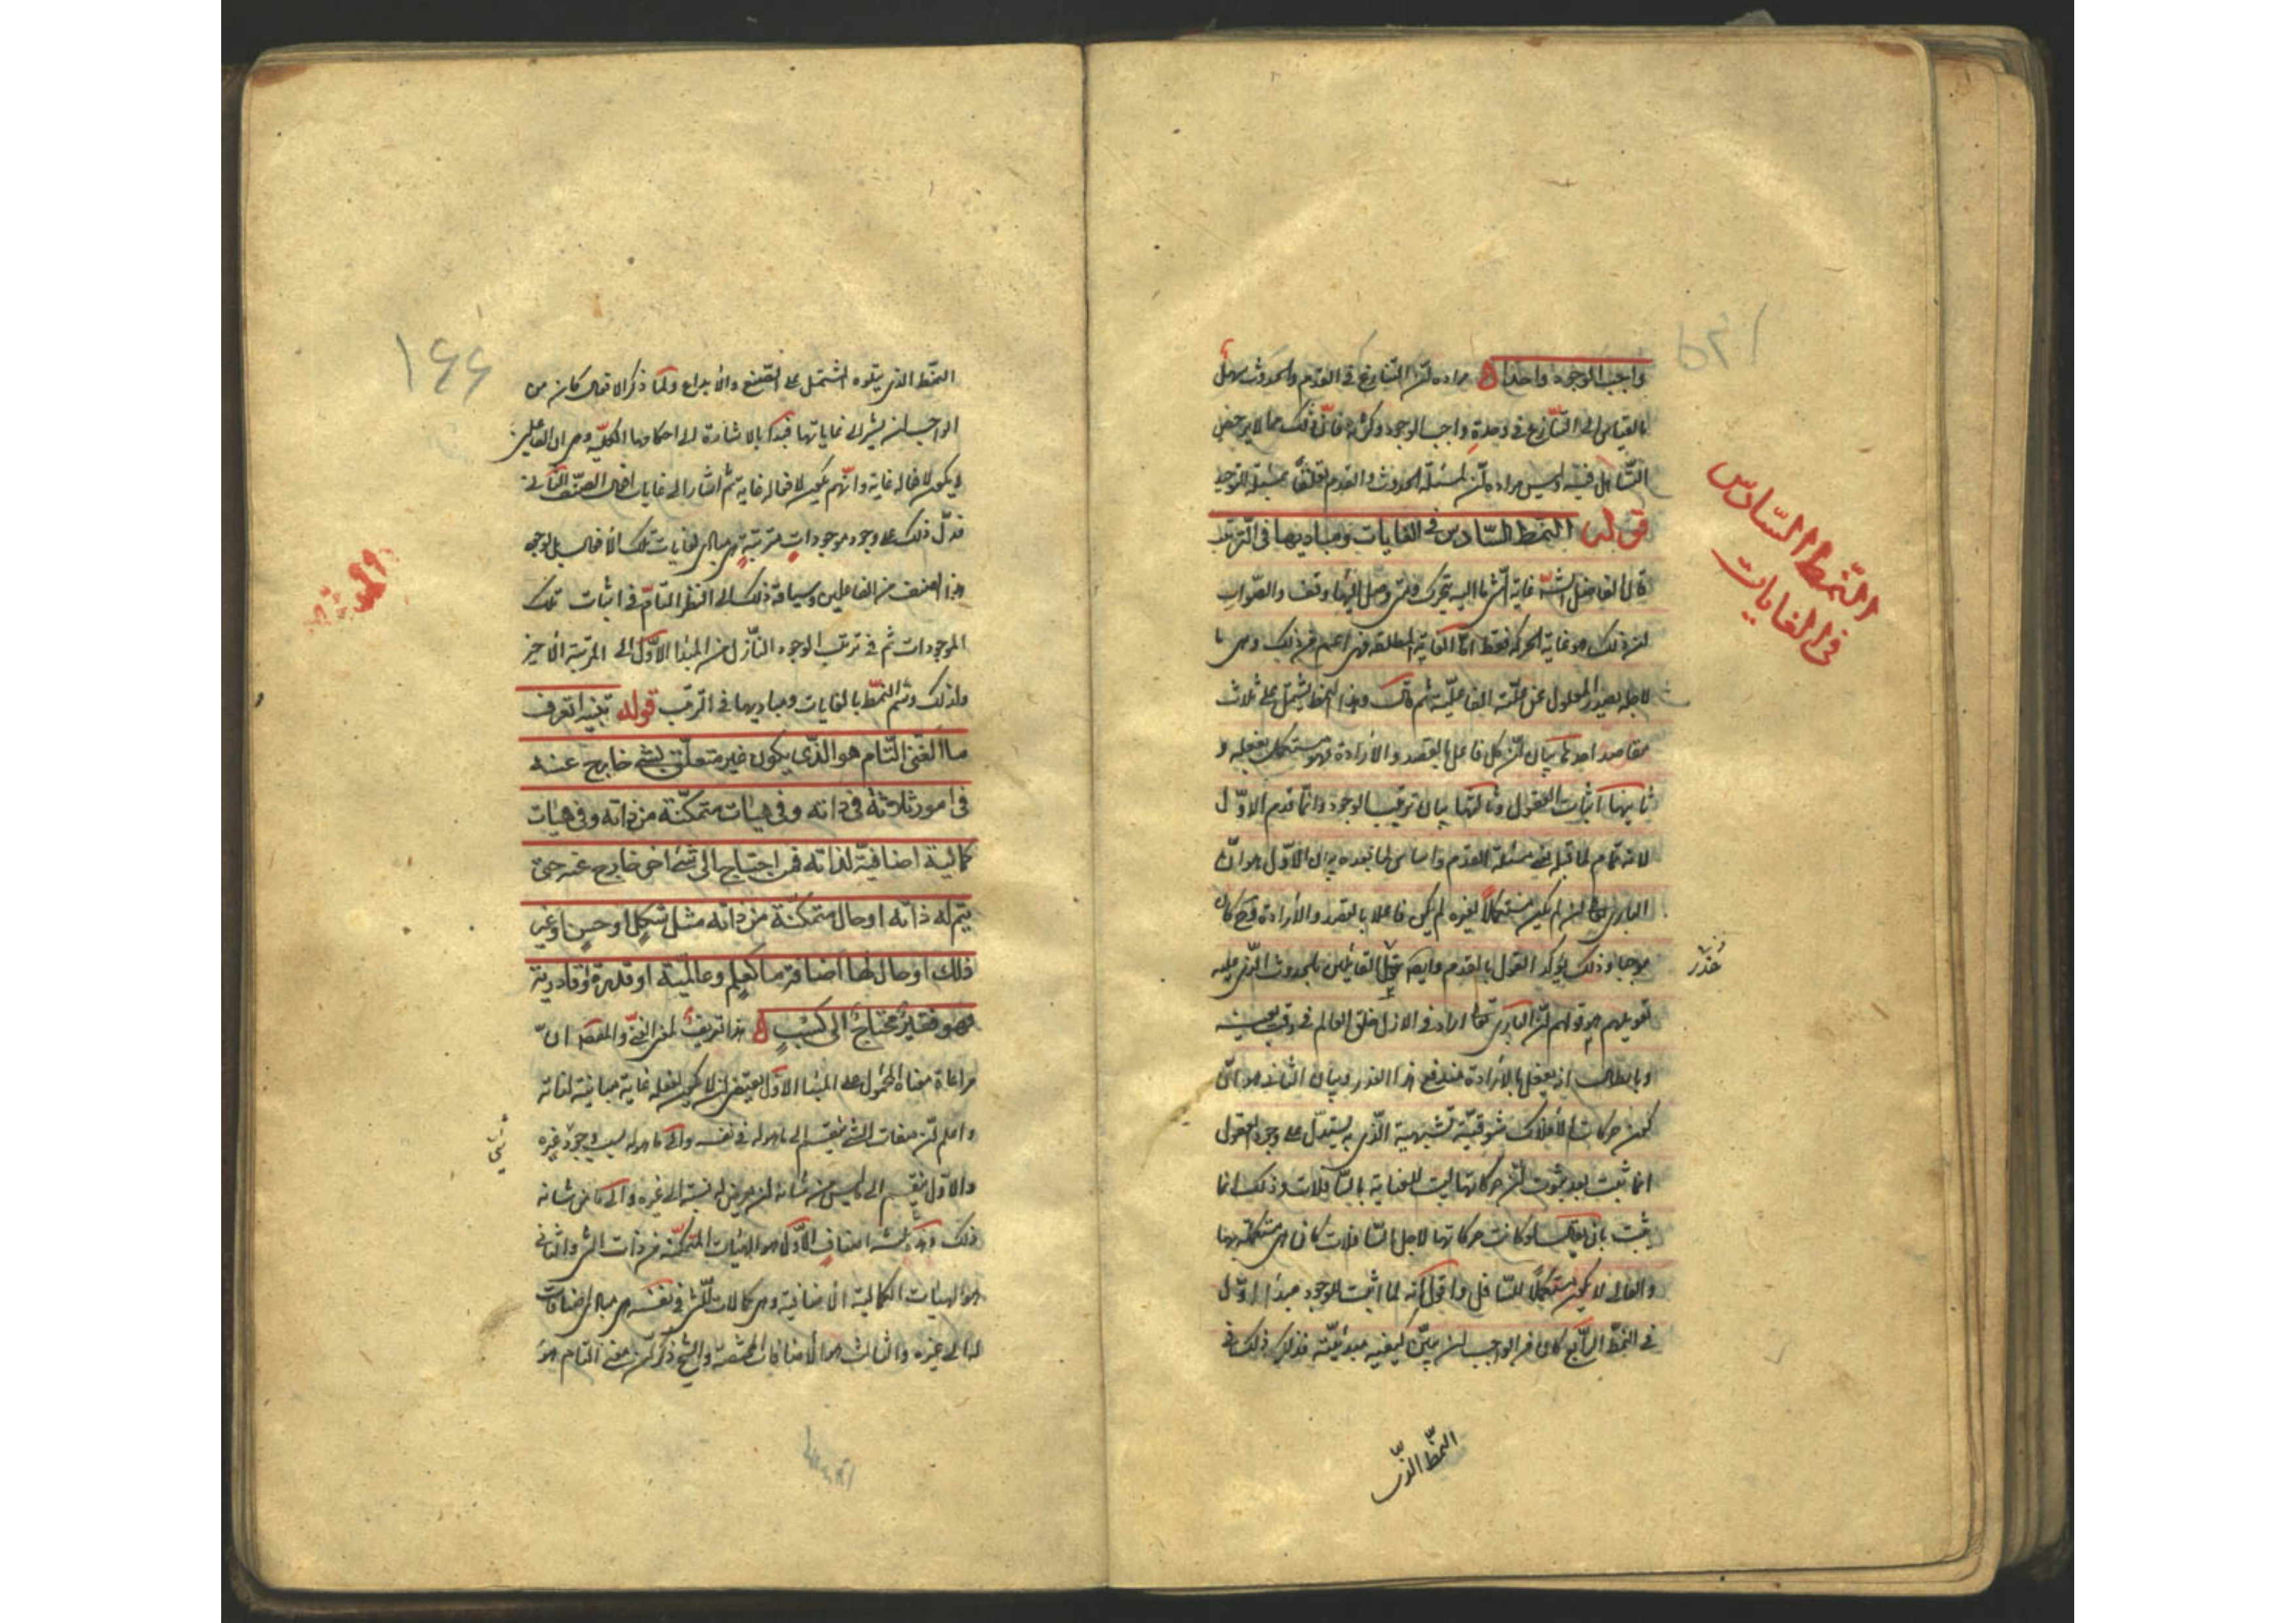 واجب الوجود واحدا ه مراده أن التنازع في القدم والحدوث سهل
بالقياس إلى التنازع في وحدة واجب الوجود وكثرته فإن ذلك مما لا يرخص
التساهل فيه وليس مراده أن لمسئلة الحدوث والقدم تعلقا بمسئلة التوحيد
قوله النمط السادس في الغايات ومباديها في الترتيب
قال الفاضل الشارح غاية الشيء ما إليه يتحرك ومتى وصل إليها وقف والصواب
أن ذلك هو غاية الحركة فقط أما الغاية المطلقة فهي أعم من ذلك وهي ما
لاجله يصدر المعلول عن علته الفاعلية ثم قال وهذا النمط يشتمل على ثلاث
مقاصد احدها بيان أن كل فاعل بالقصد والارادة فهو مستكمل بفعله و
ثانيها اثبات العقول وثالثها بيان ترتيب الوجود وانما قدم الاول
لانه تمام لما قبله في مسئلة القدم واساس لما بعده بيان الاول هو ان
الباري تعالى ان لم يكن مستكملا بغيره لم يكن فاعلا بالقصد والارادة فح كان
موجبا وذلك يؤكد القول بالقدم وايضا القائلين بالحدوث الذي عليه
تعويلهم هو قولهم ان الباري تعالى اراد في الازل خلق العالم في وقت بعينه
وبابطال انه يفعل بالارادة يندفع هذا العذر وبيان الثاني هو ان
كون حركات الافلاك شوقية تشبهية الذي به يستدل على وجود العقول
انما ثبت بعد ثبوت ان حركاتها ليست للعناية بالسافلات وذلك انما
يثبت بان يقال لو كانت حركاتها لاجل السافلات كان هي مستكملة بها
والعالي لا يكون مستكملا للسافل واقول انه لما اثبت للوجود مبدأ اول
في النمط الرابع كان من الواجب ان يبين كيفية مبدئيته فذكر ذلك في
النمط السادس
في الغايات
عذر
النمط الذي
١٤٤
النمط الذي يتلوه المشتمل على الصنع والابداع ولما ذكر الافعال كان من
الواجب ان يشير إلى غاياتها فبدأ بالاشارة إلى احكامها الكلية وهي ان الفاعلين
لا يكون لافعاله غاية وايهم يكون لافعاله غاية ثم اشار إلى غايات افعال الصنف الثاني
فدل ذلك على وجود موجودات مترتبة هي مبادي لغايات تلك الافعال بل لوجود
هذا الصنف من الفاعلين وسياقة ذلك إلى النظر التام في اثبات تلك
الموجودات ثم في ترتيب الوجود النازل من المبدأ الاول إلى المرتبة الاخيرة
ولذلك وسم النمط بالغايات ومباديها في الترتيب قوله تنبيه اتعرف
ما الغني التام هو الذي يكون غير متعلق بشيء خارج عنه
في امور ثلاثة في ذاته وفي هيات متمكنة من ذاته وفي هيات
كمالية اضافية لذاته فمن احتاج إلى شيء اخر خارج عنه حتى
يتم له ذاته او حال متمكنة من ذاته مثل شكل او حسن او غير
ذلك او حال لها اضافة ما كعلم وعالمية او قدرة وقادرية
فهو فقير محتاج إلى كسب ه هذا تعريف لمعنى الغني والمقصود ان
مراعاة معناه المحمول على المبدأ الاول يقتضي ان لا يكون لفعله غاية مباينة لذاته
واعلم ان صفات الشيء تنقسم إلى ما هو له في نفسه وإلى ما هو له بسبب وجود غيره
والاول ينقسم إلى ما ليس من شأنه ان يعرض له نسبة إلى غيره وإلى ما من شانه
ذلك فهذه ثلثة اصناف الاول هو الهيئات المتمكنة من ذات الشيء والثاني
هو الهيئات الكمالية الاضافية وهي كمالات للشيء في نفسه هي مبادي اضافات
له إلى غيره والثالث هو الاضافات المحضة والشيخ ذكر ان معنى التام هو